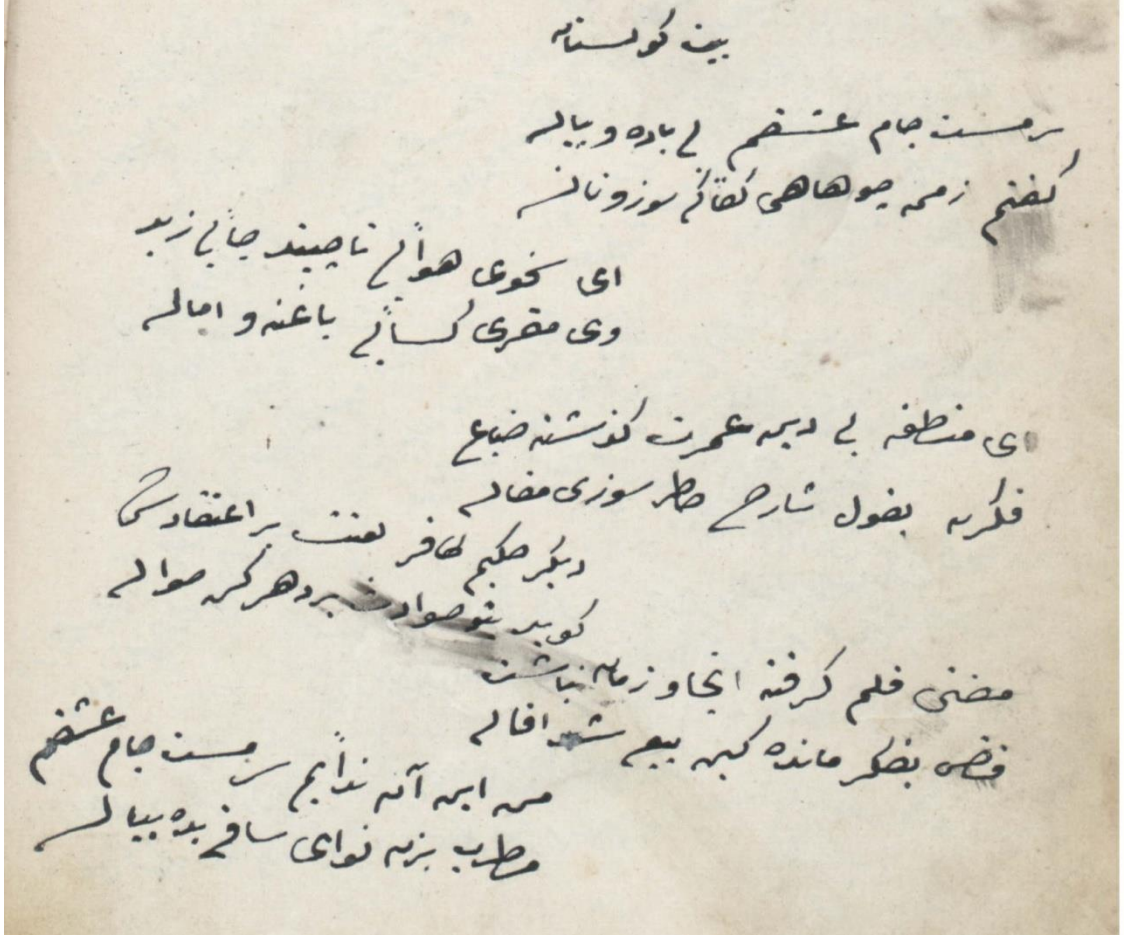 بیت کولستانه
سرمست جام عشقم بی باده و پیاله
کفتم زمی چو هاهی کفتا که سوز و ناله
ای نحوی هوائی تا چند جائی زید
وی مقری کسائی با غنه و اماله
ای منطقه بی دین عمرت کذشته ضایع
فکرت بقول شارح خاطر سوزی مقاله
دیگر حکیم کافر لعنت بر اعتقادش
کوید بتو حوادث بر دهر کن حواله
مفتی قلم کرفته اینجا و زمان نباشت
قاضی بفکر مانده کین بیع شد اقاله
من این آن ندانم سرمست جام عشقم
مطرب بزن نوای ساقی بده پیاله